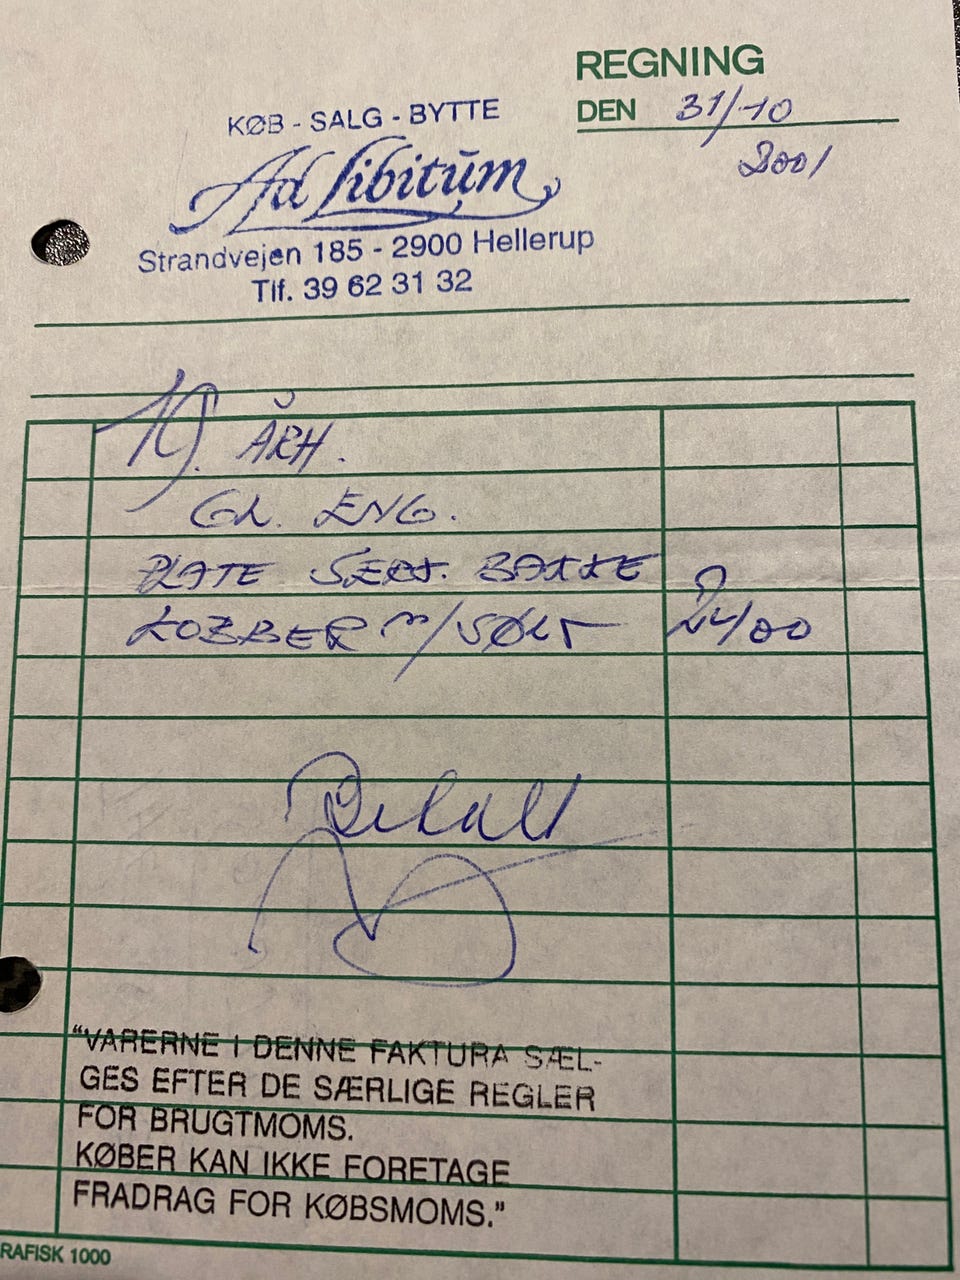 REGNING
DEN 31/10
2001
KØB - SALG - BYTTE
Ad Libitum
Strandvejen 185 - 2900 Hellerup
Tlf. 39 62 31 32
19. ÅRH.
GL. ENG.
PLATE SERV. BAKKE
KOBBER m/SØLV
Betalt
"VARERNE I DENNE FAKTURA SÆL-
GES EFTER DE SÆRLIGE REGLER
FOR BRUGTMOMS.
KØBER KAN IKKE FORETAGE
FRADRAG FOR KØBSMOMS."
RAFISK 1000